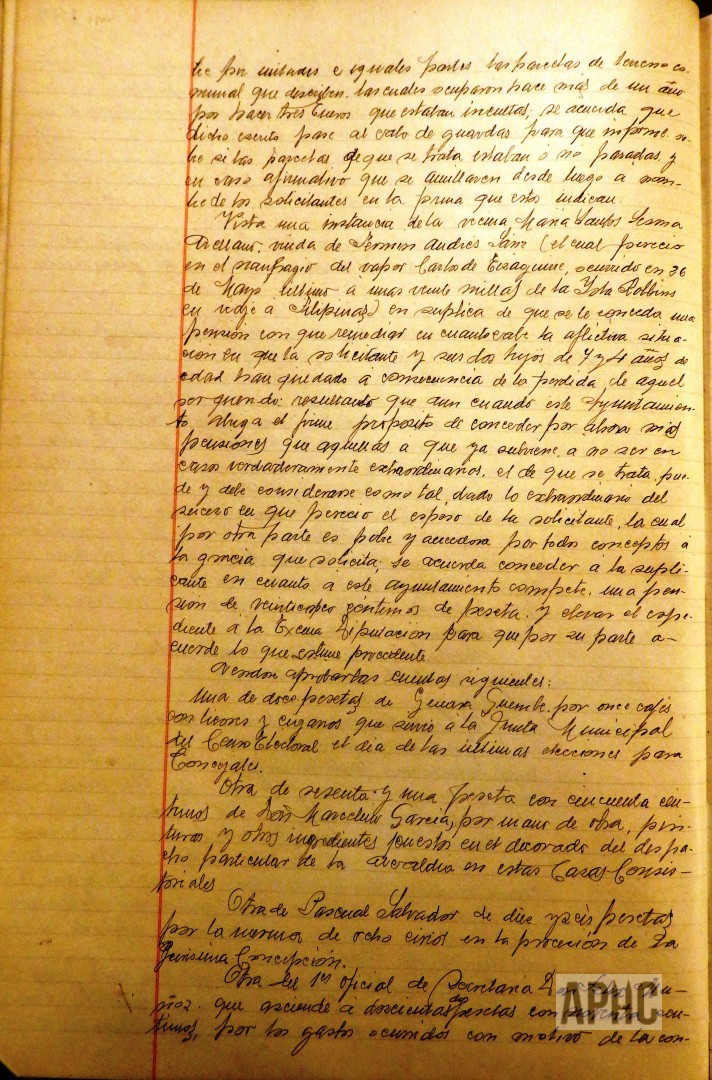 tre por mitades e iguales partes las parcelas de terreno co-
munal que describen las cuales ocuparon hace mas de un año
por hacer tres Eneros que estaban incultas, se acuerda que
dicho escrito pase al cabo de guardas para que informe so-
bre si las parcelas de que se trata estaban ó no paradas y
en caso afirmativo que se amillaren desde luego a nom-
bre de los solicitantes en la forma que estos indican.
Vista una instancia de la vecina Maria Santos Lesma
Arellano, viuda de Fermin Andres Sanz (el cual perecio
en el naufragio del vapor Carlos de Eizaguirre, ocurrido en 26
de Mayo último a unas veinte millas de la Isla Robbins
en viaje a Filipinas) en suplica de que se le conceda una
pensión con que remediar en cuanto cabe la aflictiva situa-
cion en que la solicitante y sus dos hijos de 7 y 4 años de
edad han quedado á consecuencia de la perdida de aquel
ser querido: resultando que aun cuando este Ayuntamien-
to abriga el firme proposito de conceder por ahora mas
pensiones que aquellas a que ya subviene, a no ser en
casos verdaderamente extraordinarios, el de que se trata pue-
de y debe considerarse como tal, dado lo extraordinario del
suceso en que perecio el esposo de la solicitante, la cual
por otra parte es pobre y acreedora por todos conceptos á
la gracia que solicita; se acuerda conceder a la supli-
cante en cuanto a este ayuntamiento compete, una pen-
sion de veinticinco céntimos de peseta y elevar el expe-
diente á la Excma Diputación para que por su parte a-
cuerde lo que estime procedente.
Vienen aprobarlas cuentas siguientes:
Una de doce pesetas de Guembe, por once cafés
con licores y cigarros que sirvió á la Junta Municipal
del Censo Electoral el dia de las últimas elecciones para
Concejales.
Otra de sesenta y una peseta con cincuenta cen-
timos de Don Marcelino Garcia, por mano de obra, pin-
turas y otros ingredientes puestos en el decorado del despa-
cho particular de la alcaldia en estas Casas Consis-
toriales
Otra de Pascual Salvador de diez y seis pesetas
por la merma de ocho cirios en la procesión de La
Purisima Concepción.
Otra del 1er oficial de Secretaria D
ñoz que asciende á doscientas dos pesetas con noventa cen-
timos, por los gastos ocurridos con motivo de la con-
APHC